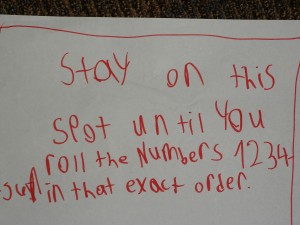 Stay on this
spot until You
roll the Numbers 1234
in that exact order.